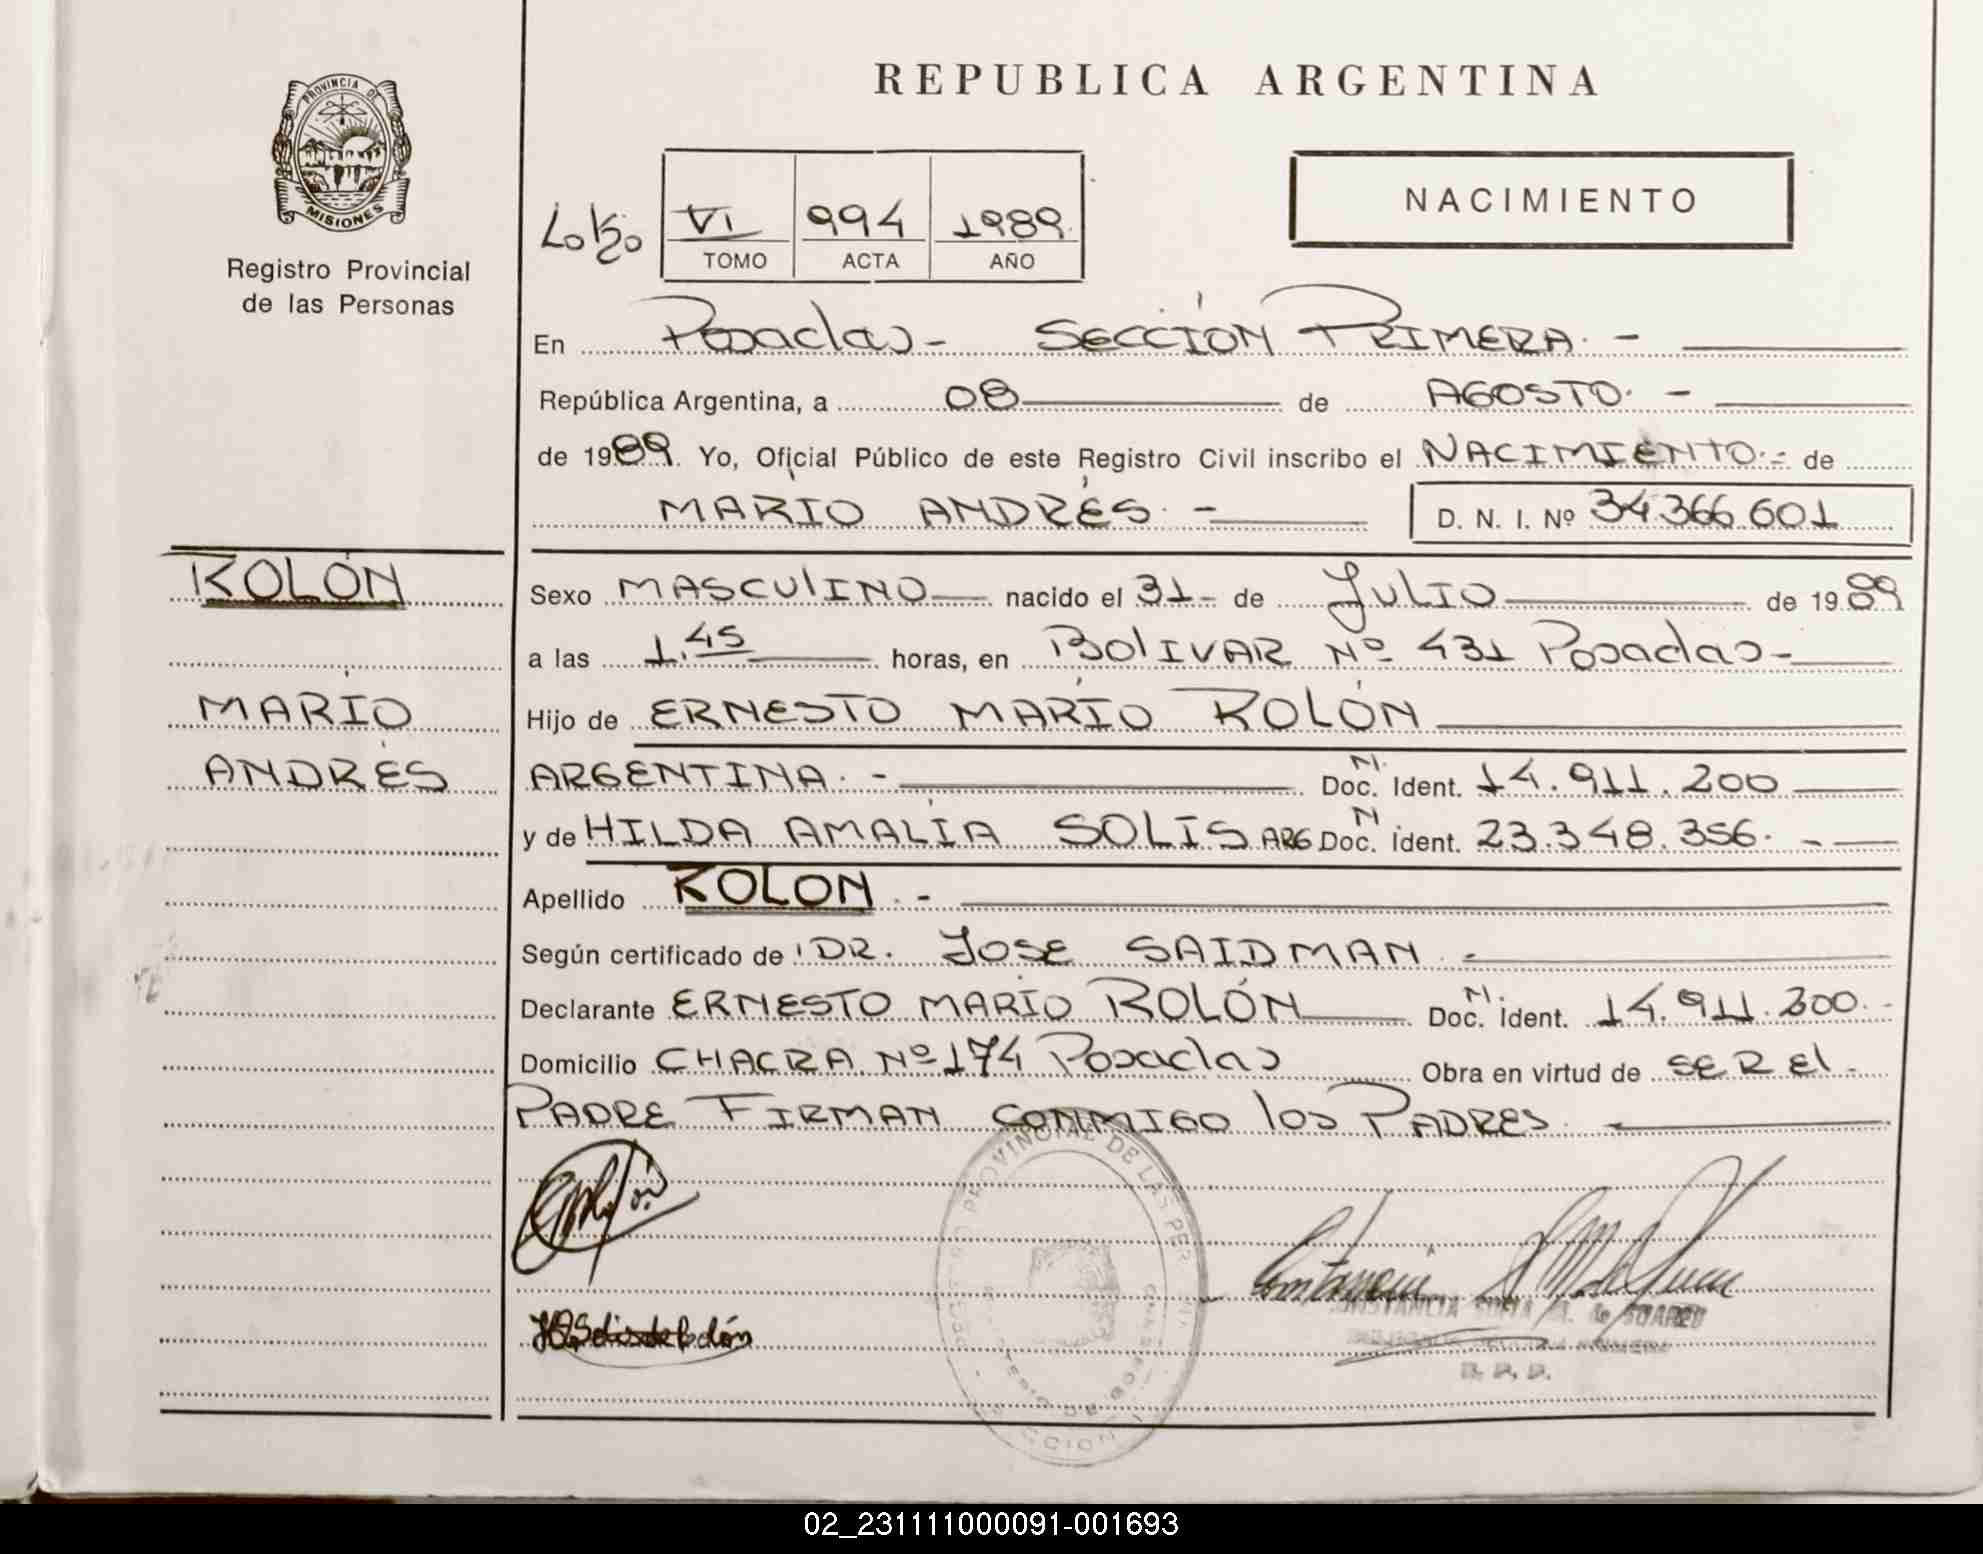 REPUBLICA ARGENTINA
PROVINCIA DE
MISIONES
Registro Provincial
de las Personas
NACIMIENTO
VI 994 1989
TOMO ACTA AÑO
En Posadas - SECCIÓN PRIMERA. -
República Argentina, a 08 de AGOSTO. -
de 1989. Yo, Oficial Público de este Registro Civil inscribo el NACIMIENTO.- de
MARIO ANDRÉS. - D. N. I. Nº 34.366.601
ROLÓN
MARIO
ANDRÉS
Sexo MASCULINO nacido el 31 - de JULIO de 1989
a las 1.45 horas, en BOLIVAR Nº 431 Posadas -
Hijo de ERNESTO MARIO ROLÓN
ARGENTINA. - Doc. N. Ident. 14.911.200
y de HILDA AMALIA SOLIS ARG Doc. N Ident. 23.348.356. -
Apellido ROLON. -
Según certificado de DR. JOSE SAIDMAN. -
Declarante ERNESTO MARIO ROLÓN Doc. N. Ident. 14.911.200. -
Domicilio CHACRA Nº 174 Posadas Obra en virtud de SER El
PADRE FIRMAN CONMIGO los PADRES.
PROVINCIAL DE LAS PER
CONSTANCIA M. de SUAREZ
02_231111000091-001693